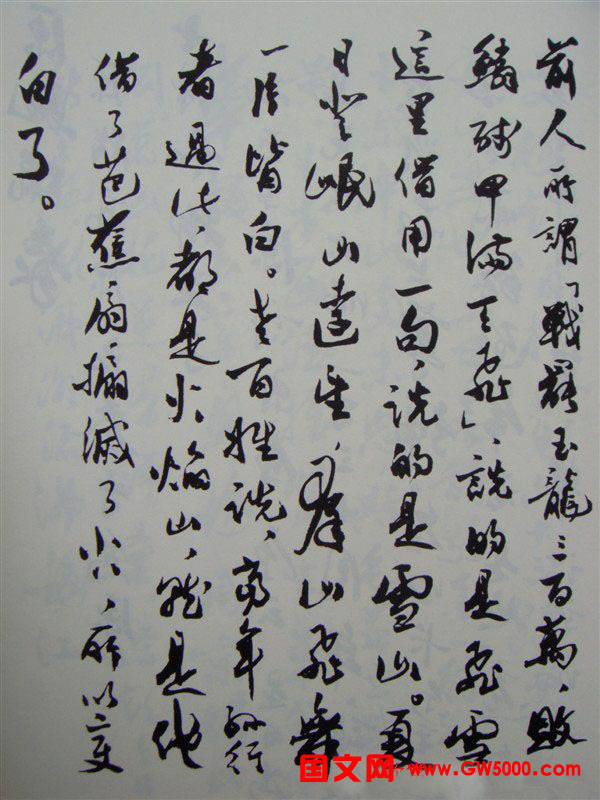 前人所謂「戰罷玉龍三百萬，敗
鱗殘甲滿天飛」，說的是飛雪。
這里借用一句，説的是雪山。夏
日登岷山遠望，羣山飛舞，
一片皆白。老百姓說，當年孫行
者過此，都是火焰山，就是他
借了芭蕉扇搧滅了火，所以變
白了。
国文网 www.GW5000.com